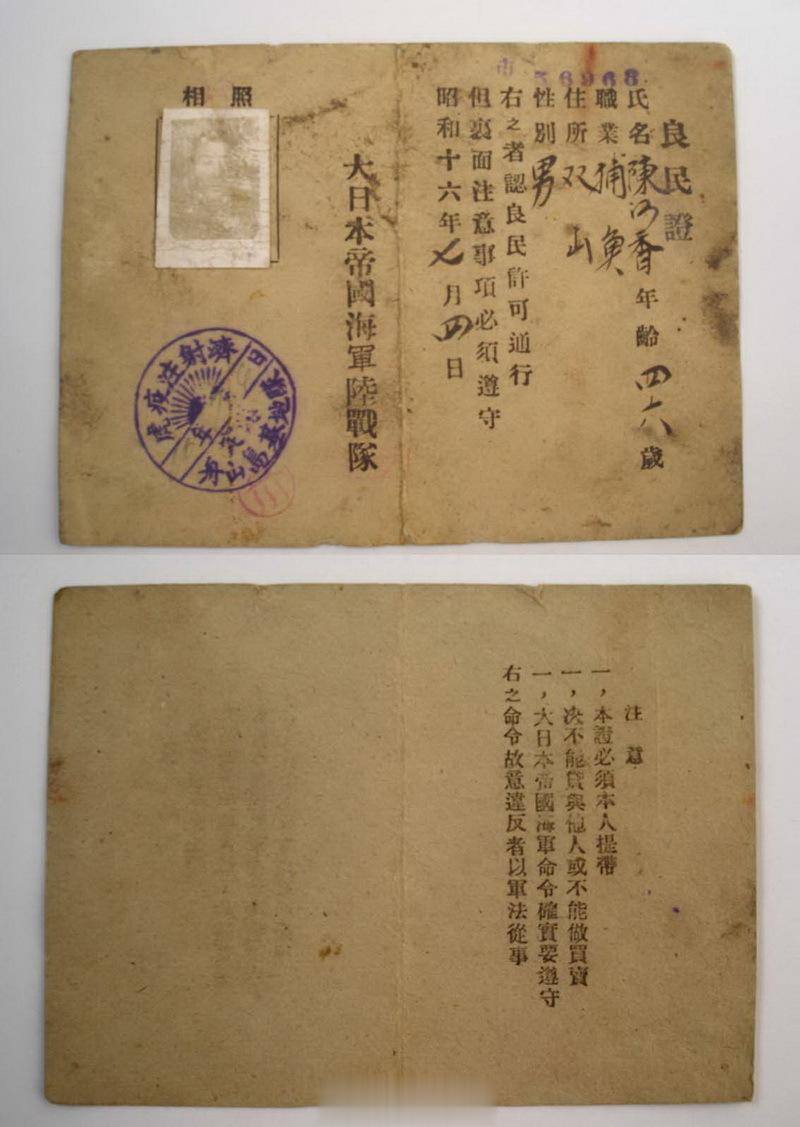 市 56968
良民證
氏名 陳 香 年齡 四六 歲
職業 捕魚
住所 双山
性別 男
右之者認良民許可通行
但裏面注意事項必須遵守
昭和十六年七月四日
大日本帝國海軍陸戰隊
照相
虎疫注射濟
注意
一，本證必須本人提帶
一，决不能貸與他人或不能做買賣
一，大日本帝國海軍命令確實要遵守
右之命令故意違反者以軍法從事